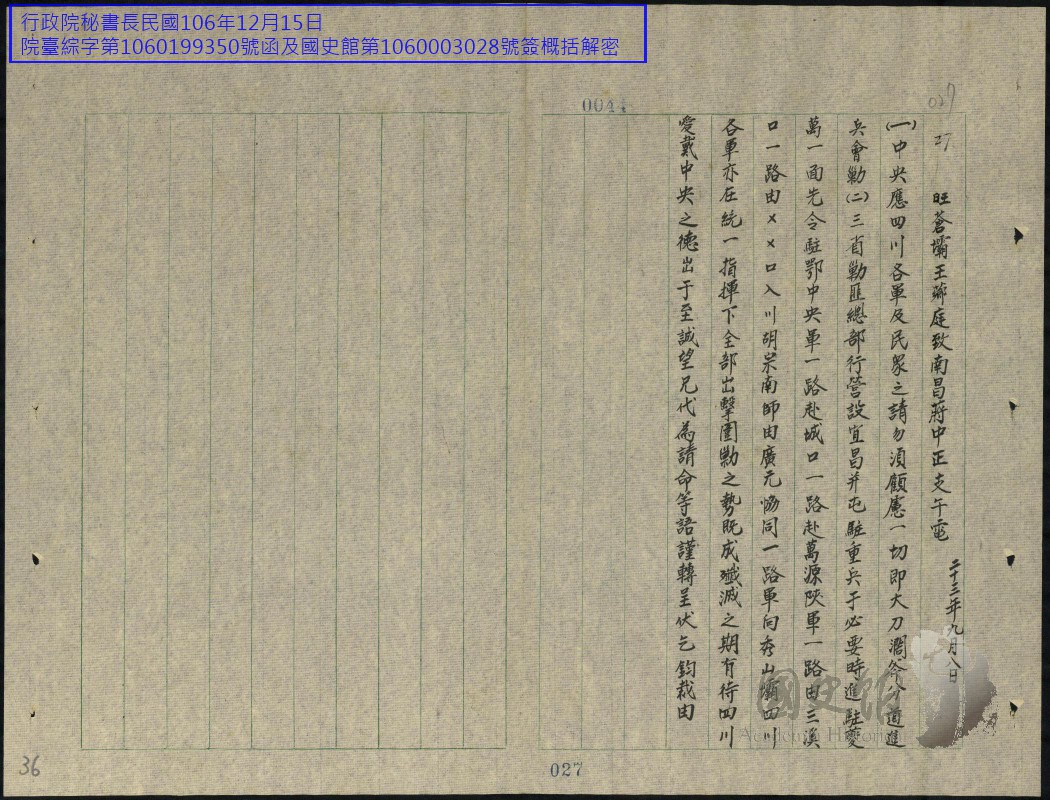 行政院秘書長民國106年12月15日
院臺綜字第1060199350號函及國史館第1060003028號簽概括解密
0044
027
27
旺蒼壩王鄰庭致南昌蔣中正支午電
二十三年九月八日
(一)中央應四川各軍及民眾之請勿須顧慮一切即大刀濶斧分道進
兵會勦(二)三省勦匪總部行營設宜昌并屯駐重兵于必要時進駐夔
萬一面先令駐鄂中央軍一路赴城口一路赴萬源陝軍一路由三溪
口一路由××口入川胡宗南師由廣元協同一路軍向秀山壩四川
各軍亦在統一指揮下全部出擊圍勦之勢既成殲滅之期有待四川
愛戴中央之德出于至誠望兄代為請命等語謹轉呈伏乞鈞裁由
國史館
Academia Historica
36
027